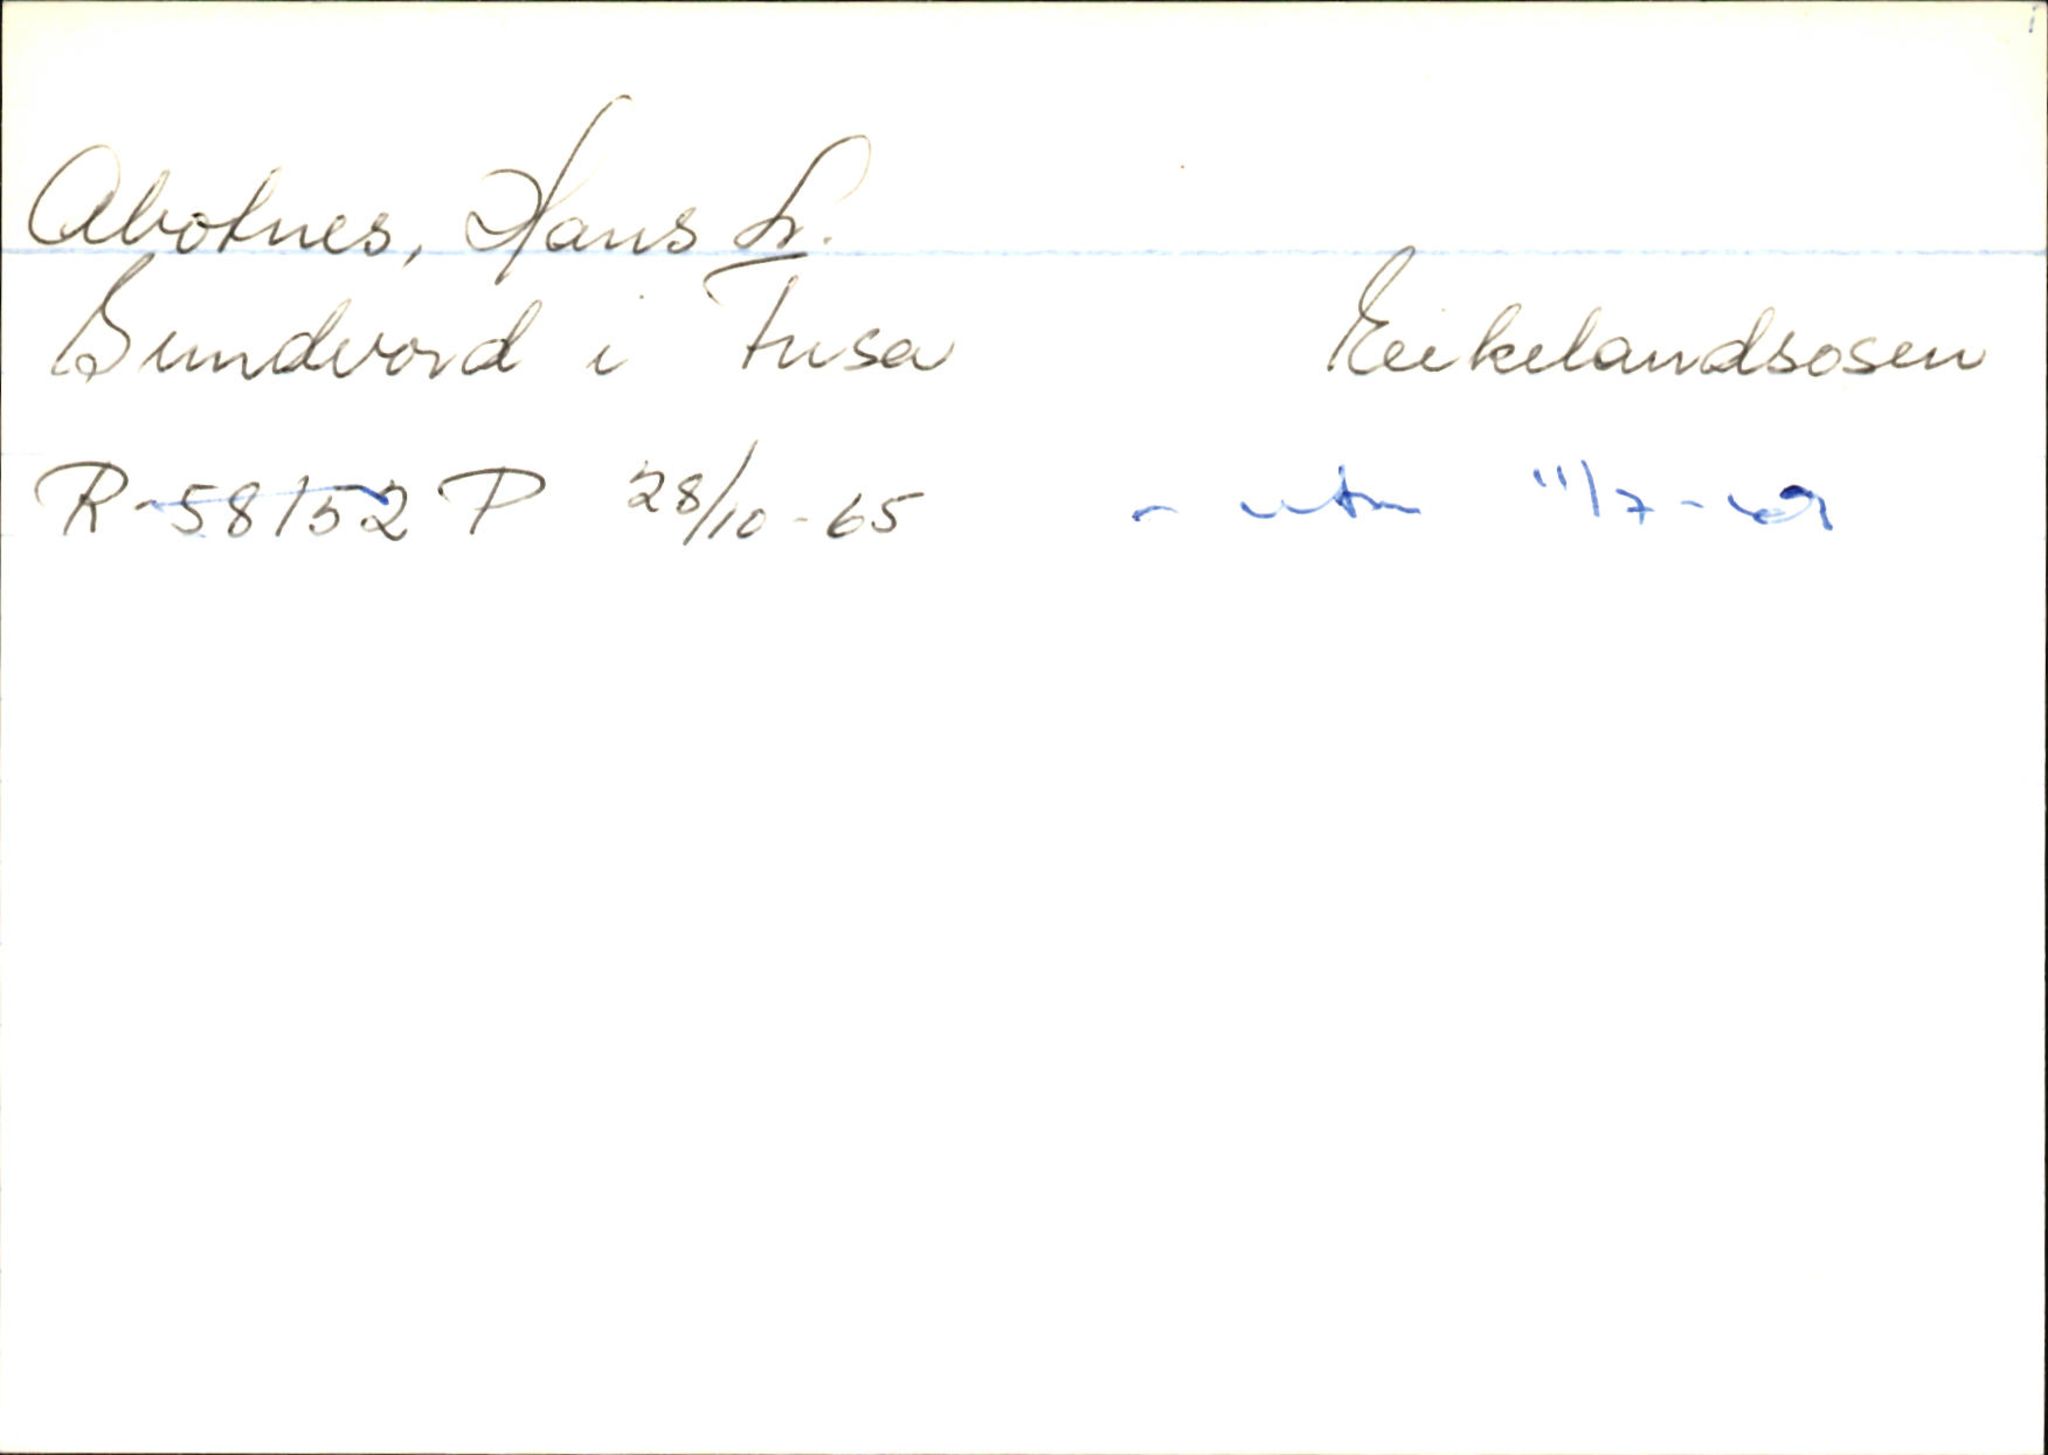 Abotnes, Hans Sr.
Sundvord i Fusa Eikelandsosen
R-58152 P 28/10-65 - utm 11/7-69